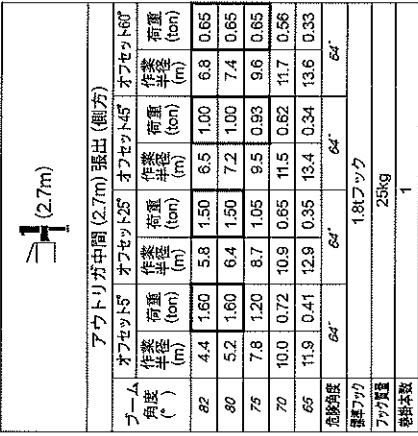 (2.7m)
アウトリガ中間 (2.7m) 張出 (側方)
ブーム角度 (°) オフセット5° オフセット25° オフセット45° オフセット60°
作業半径 (m) 荷重 (ton) 作業半径 (m) 荷重 (ton) 作業半径 (m) 荷重 (ton) 作業半径 (m) 荷重 (ton)
82 4.4 1.60 5.8 1.50 6.5 1.00 6.8 0.65
80 5.2 1.60 6.4 1.50 7.2 1.00 7.4 0.65
75 7.8 1.20 8.7 1.05 9.5 0.93 9.6 0.65
70 10.0 0.72 10.9 0.65 11.5 0.62 11.7 0.56
65 11.9 0.41 12.9 0.35 13.4 0.34 13.6 0.33
危険角度 64° 64° 64° 64°
標準フック 1.8tフック
フック質量 25kg
巻掛本数 1